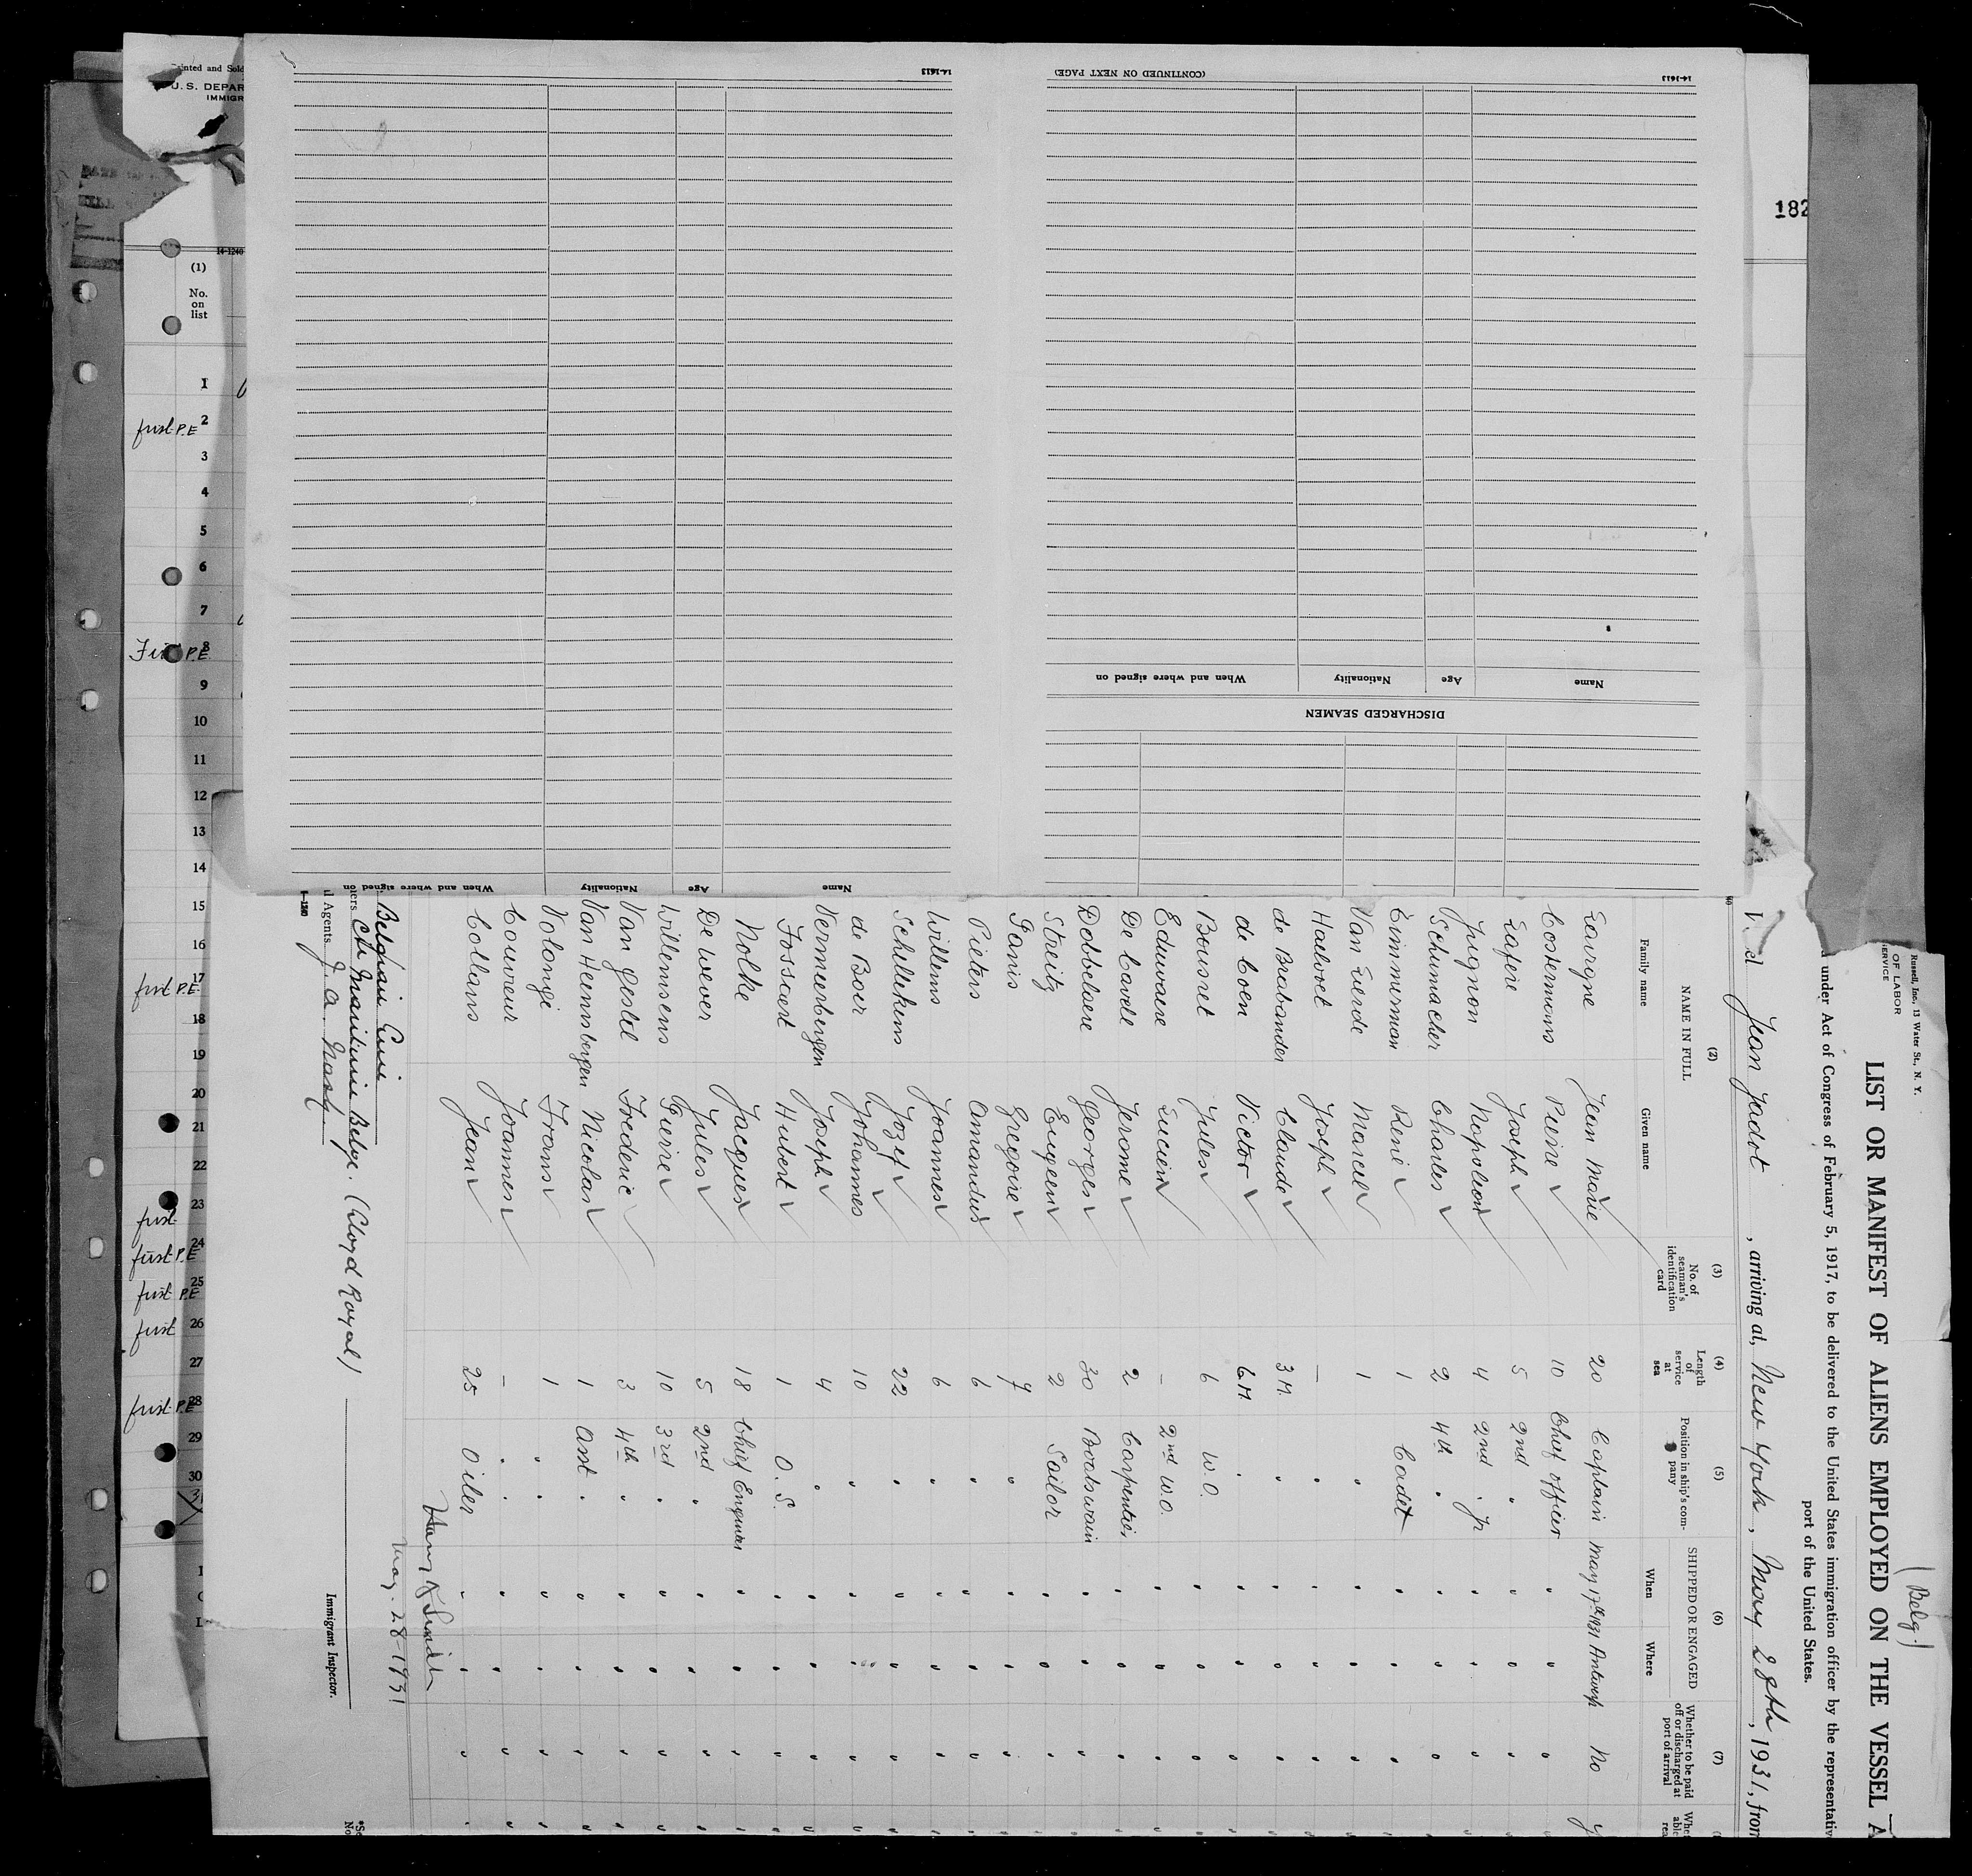 Printed and Sold
U. S. DEPAR
IMMIGR
14-1240
(1)
No.
on
list
1
2
3
4
5
6
7
8
9
10
11
12
13
14
15
16
17
18
19
20
21
22
23
24
25
26
27
28
29
30
first P.E
P.E.
first P.E.
first
first P.E
first P.E
first
first P.E
182
14-1613
(CONTINUED ON NEXT PAGE)
14-1613
Name
Age
Nationality
When and where signed on
DISCHARGED SEAMEN
Name
Age
Nationality
When and where signed on
(Belg.)
Russell, Inc., 13 Water St., N. Y.
OF LABOR
SERVICE
LIST OR MANIFEST OF ALIENS EMPLOYED ON THE VESSEL A
under Act of February 5, 1917, to be delivered to the United States immigration officer by the representativ
port of the United States.
Jean Jadot, arriving at, New York, May 28th, 1931, from
(2)
NAME IN FULL
Family name Given name
(3)
No. of seaman's identification card
(4)
Length of service at sea
(5)
Position in ship's company
(6)
SHIPPED OR ENGAGED
When Where
(7)
Whether to be paid off or discharged at port of arrival
Jean Marie 20 Captain May 17th 1931 Antwerp No
Costermans Pierre 10 Chief officer
Joseph 5 2nd "
Jugnon Napoleon 4 2nd " Jr
Schumacher Charles 2 4th "
Timmerman René 1 Cadet
Marcel 1 "
Haevoet Joseph - "
de Brabander Claude 3 M. "
de Coen Victor 6 M. "
Bousret Jules 6 W.O.
Lucien - 2nd W.O.
De Cavele Jerome 2 Carpenter
Dobbelaere Georges 30 Boatswain
Streitz Eugeen 2 Sailor
Gregoire 7 "
Pieters Amandus 6 "
Willems Joannes 6 "
Schellekens Jozef 22 "
de Boer Johannes 10 "
Vermerbergen Joseph 4 "
Fossaert Hubert 1 O. S.
Nolke Jacques 18 Chief Engineer
De Wever Jules 5 2nd "
Willemsens Pierre 10 3rd "
Van Gestel Frederic 3 4th "
Van Heemsbergen Nicolas 1 Asst "
Volongi Frans 1 " "
Couvreur Joannes - " "
Collans Jean 25 Oiler
May. 28-1931
Immigrant Inspector.
Belgian Line
Cie Maritime Belge. (Lloyd Royal)
Agents J. A.